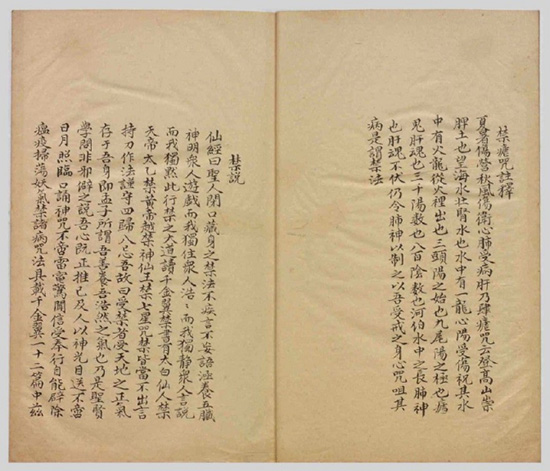 禁瘧咒註釋
夏暑傷營秋風傷衛心肺受病肝乃肆瘧咒云登高山崇
脾土也望海水壯腎水也水中有一龍心陽受傷祝其水
中有火龍從火裡出也三頭陽之始也九尾陽之極也瘧
鬼肝魂也三十陽數也八百陰數也河伯水中之長肺神
也肝魂不伏仍令肺神以制之以吾受戒之身心咒咀其
病是謂禁法
禁説
仙經曰聖人閉口藏身之禁法不疾言不妄語涵養五臟
神明衆人遊戲而我獨住衆人浩〻而我獨静衆人言説
而我獨默此行禁之大道讀千金翼禁書有太白仙人禁
天帝太乙禁黄帝越禁神仙王禁七星咒禁皆當不出言
持刀作法謹守四歸八心吾故曰受禁者受天地之正氣
存于吾身即孟子所謂吾善養吾浩然之氣也乃是聖賢
學問非邪僻之説吾心既正推己及人以神光目送不啻
日月照臨口誦神咒不啻雷霆驚聞信受奉行自能辟除
瘟疫掃蕩妖氣禁諸病咒法具載千金翼一十二篇中兹